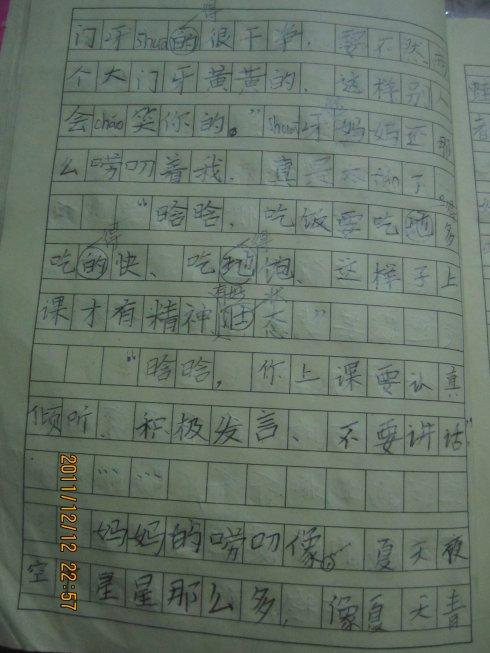 门牙shuā的很干净．要不然两
得
个大门牙黄黄的．这样别人
会cháo笑你的。”shuā牙妈妈还那
么唠叨着我．真是
“晗晗．吃饭要吃地多
得 得
吃的快、吃地饱．这样子上
课才有精神 态”
“晗晗，你上课要认真
倾听．积极发言、不要讲话”
…… 
妈妈的唠叨像 夏天夜
空 星星那么多，像夏天青
2011/12/12 22:57